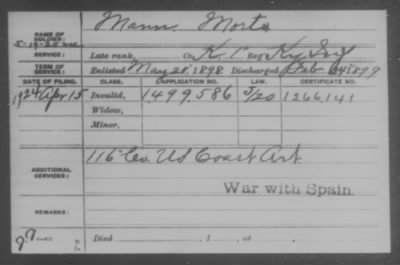 NAME OF SOLDIER: Mann Morts
SERVICE: Late rank, Co. K, 1 Reg't Ky Inf
TERM OF SERVICE: Enlisted May 28, 1898 Discharged Feb 24, 1899
DATE OF FILING. CLASS. APPLICATION NO. LAW. CERTIFICATE NO.
1924 Apr. 15 Invalid, 1.499.586 S/20 1266.141
Widow,
Minor,
ADDITIONAL SERVICES: 116 Co. US Coast Art.
War with Spain.
REMARKS:
Died , 1 , at